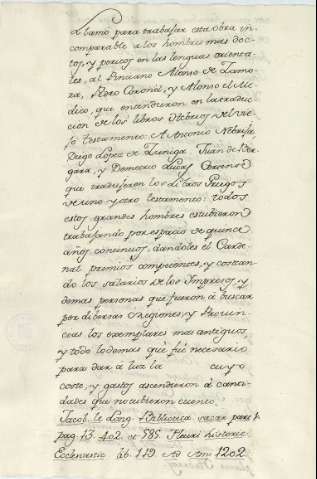 Llamó para trabajar esta obra in-
comparable a los hombres mas doc-
tos, y peritos en las lenguas orienta-
les, al Pinciano Alonso de Zamo-
ra, Pedro Coronel, y Alonso el Me-
dico, que entendieron en la traduc-
cion de los libros Hebreos del vie-
jo testamento: A Antonio Nebrija
Diego Lopez de Zuñiga Juan de Ver-
gara, y Demetrio Cretense
que tradujeron los libros Griegos
de uno y otro testamento: todos
estos grandes hombres estubieron
trabajando por espacio de quince
años continuos, dandoles el Carde-
nal premios competentes, y costean-
do los salarios de los Impresos, y
demas personas que fueron a buscar
por diversas Regiones, y Provin-
cias los exemplares mas antiguos,
y todo lo demas que fué necesario
para dar a luz la cuyo
coste, y gastos ascendieron á canti-
dades que no tubieron cuento.
Jacob. le Long Bibliotheca sacra part. 1.
pag. 13. 402. et 585. Fleuri historia
Ecclesiastic lib. 119. Ad Ann 1202.